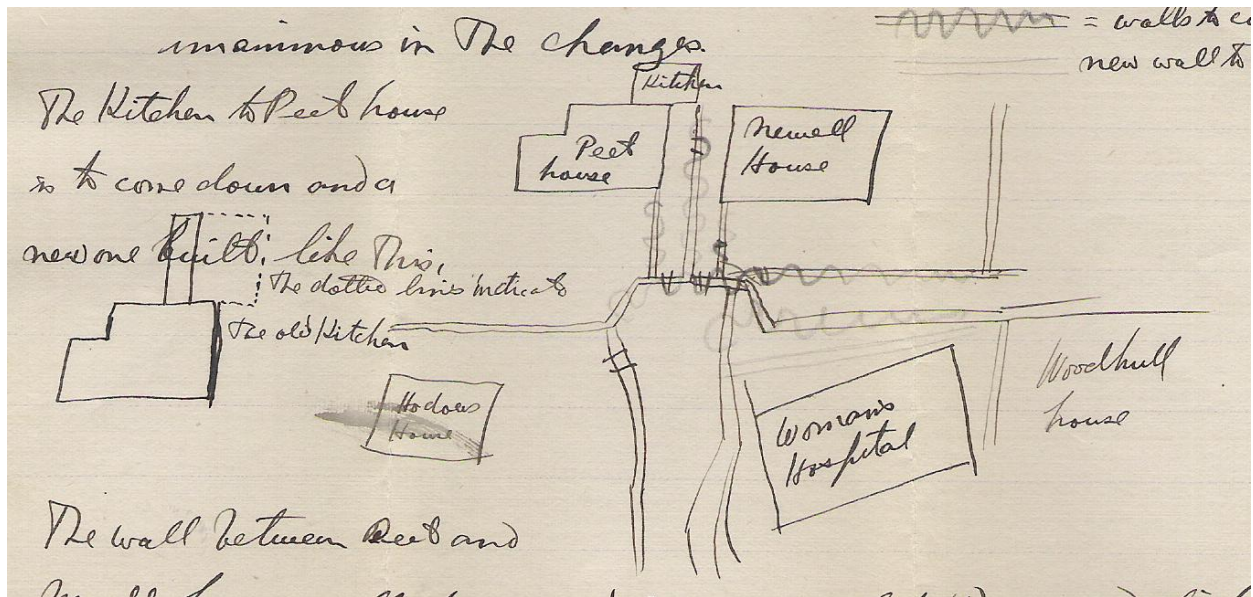 unanimous in The changes.
= walls to
new wall to
The Kitchen to Peet house
is to come down and a
new one built, like This,
The dotted lines indicate
The old Kitchen
Kitchen
Peet
house
Newell
House
Hodous
House
Woman's
Hospital
Woodhull
house
The wall between Peet and